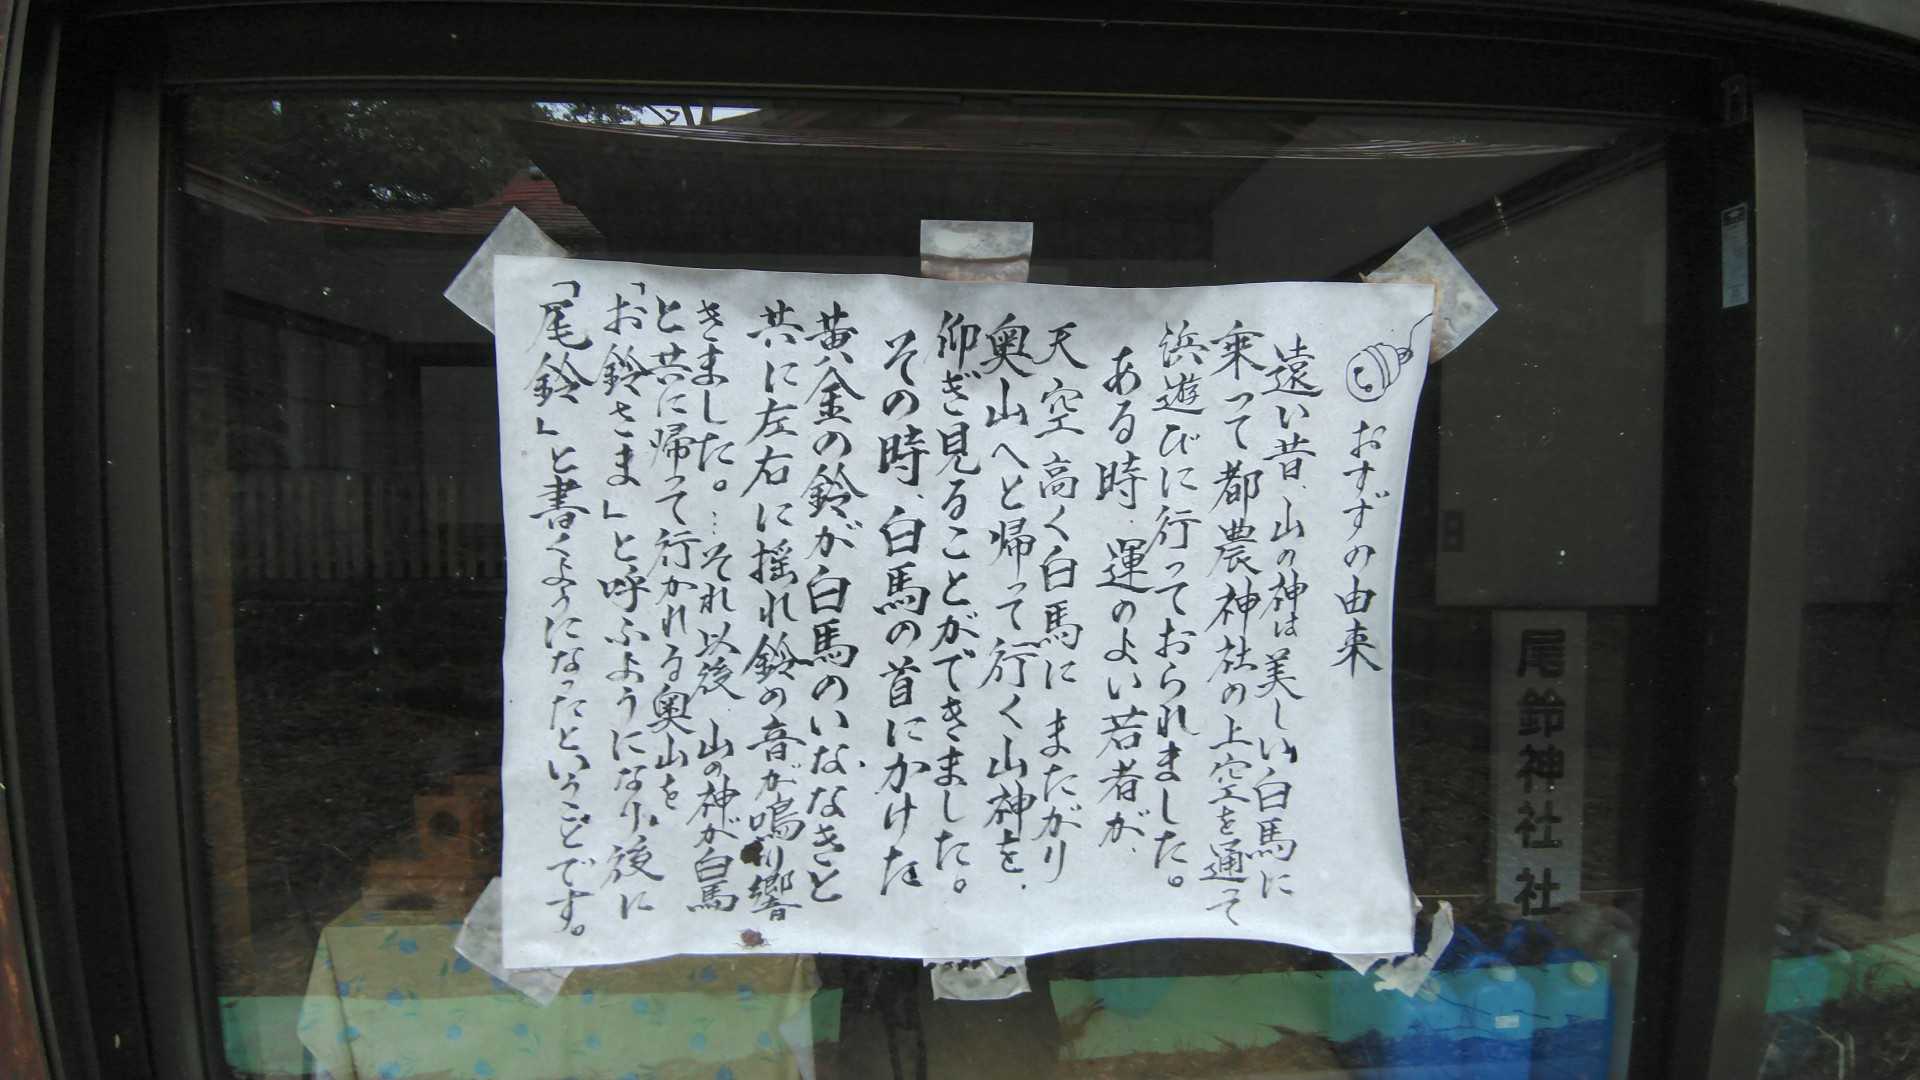 おすずの由来
遠い昔、山の神は美しい白馬に
乗って都農神社の上空を通って
浜遊びに行っておられました。
ある時、運のよい若者が、
天空高く白馬にまたがり
奥山へと帰って行く山神を、
仰ぎ見ることができました。
その時、白馬の首にかけた
黄金の鈴が白馬のいななきと
共に左右に揺れ鈴の音が鳴り響
きました。…それ以後、山の神が白馬
と共に帰って行かれる奥山を
「お鈴さま」と呼ぶようになり、後に
「尾鈴」と書くようになったということです。
尾鈴神社 社